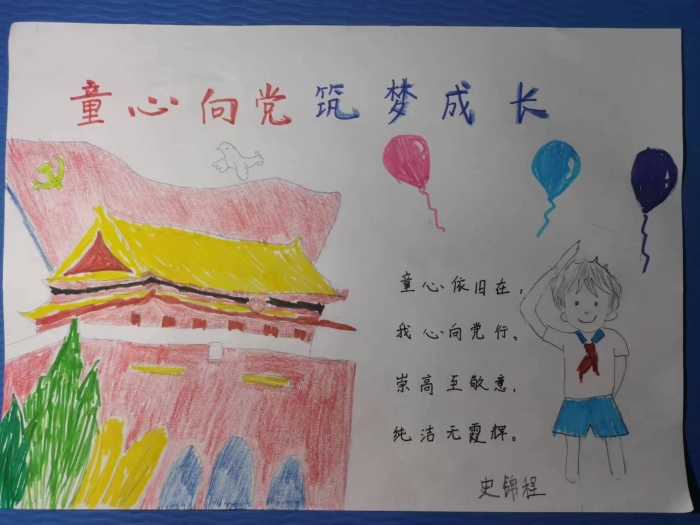 童心向党筑梦成长
童心依旧在，
我心向党行。
崇高至敬意，
纯洁无霞辉。
史锦程